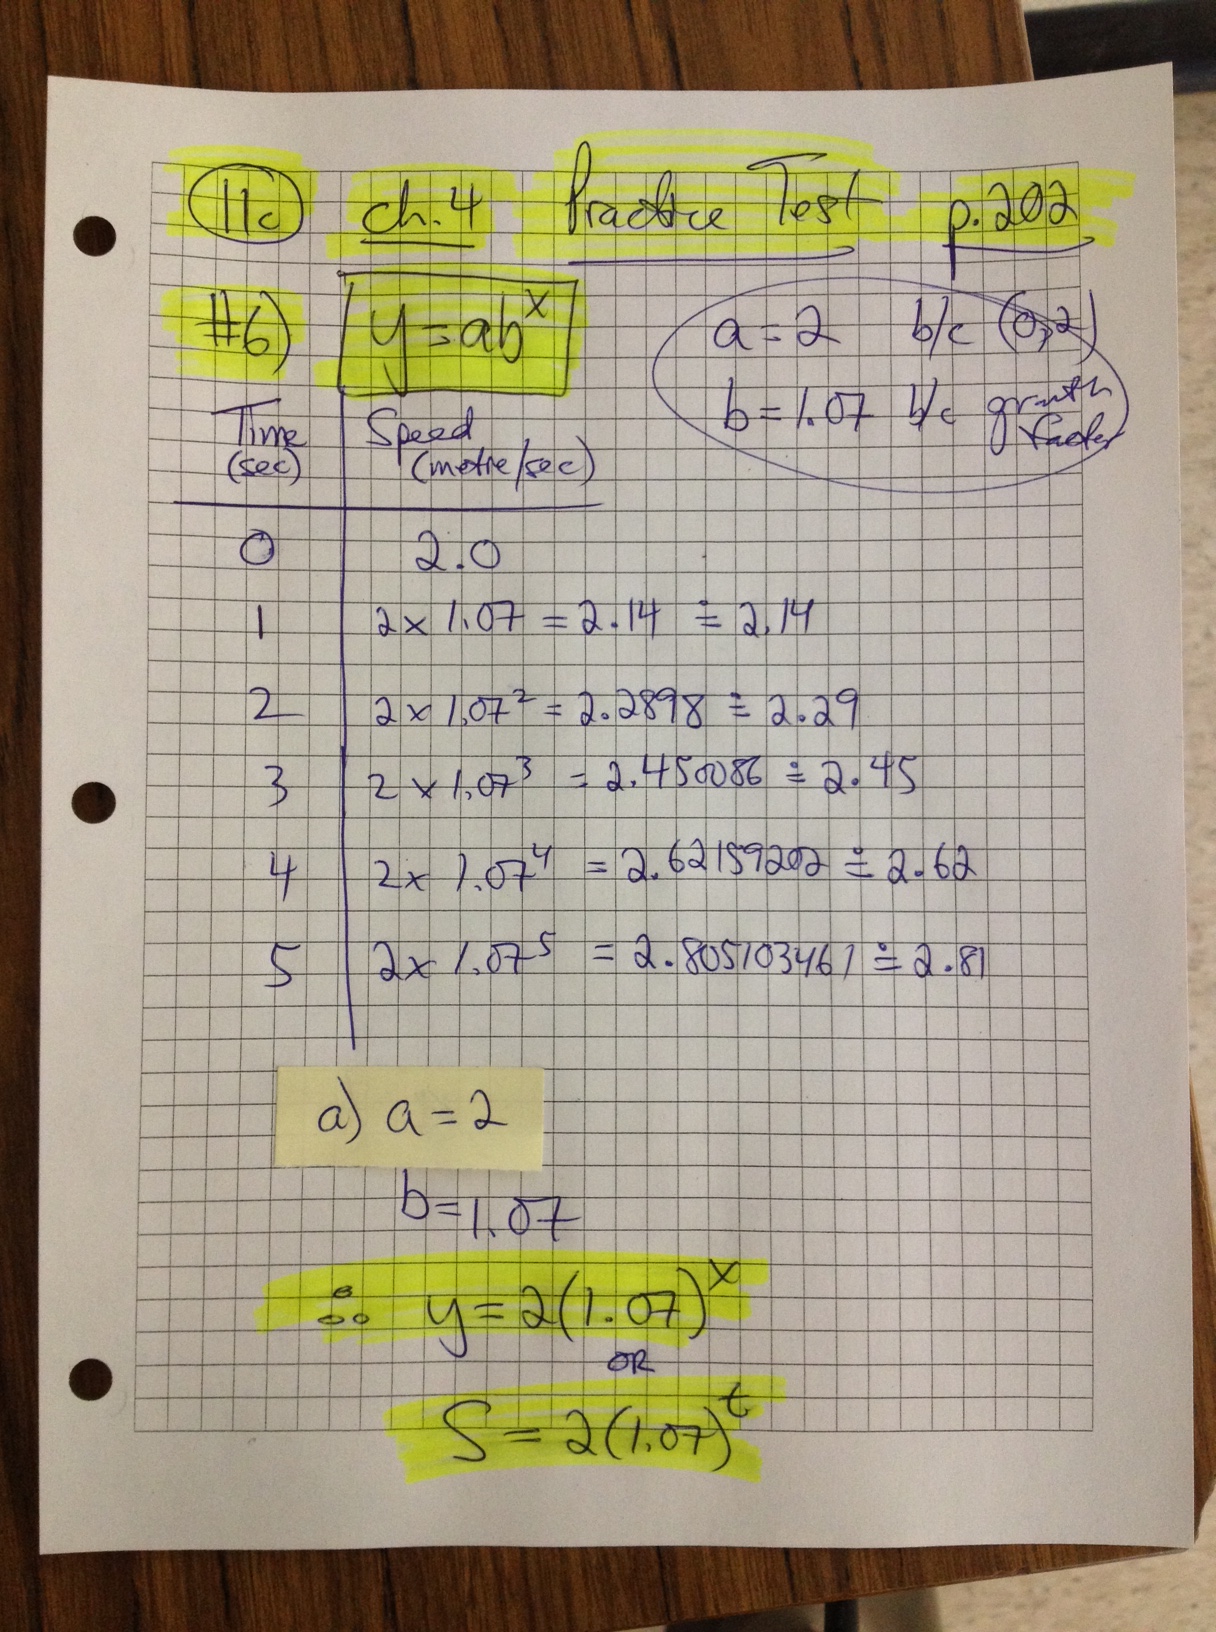 11c ch.4 Practice Test p.202
#6) y=abˣ
a=2 b/c (0,2)
b=1.07 b/c growth factor
Time (sec) Speed (metre/sec)
0 2.0
1 2x 1.07 = 2.14 ≐ 2.14
2 2x 1.07² = 2.2898 ≐ 2.29
3 2 x 1.07³ = 2.450086 ≐ 2.45
4 2x 1.07⁴ = 2.62159202 ≐ 2.62
5 2x 1.07⁵ = 2.805103461 ≐ 2.81
a) a=2
b=1.07
∴ y=2(1.07)ˣ
OR
S=2(1.07)ᵗ